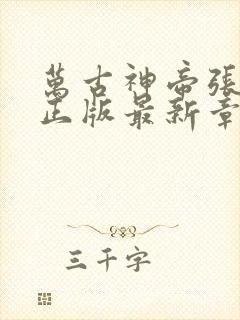 萬古神帝張
正版最新章
三千字